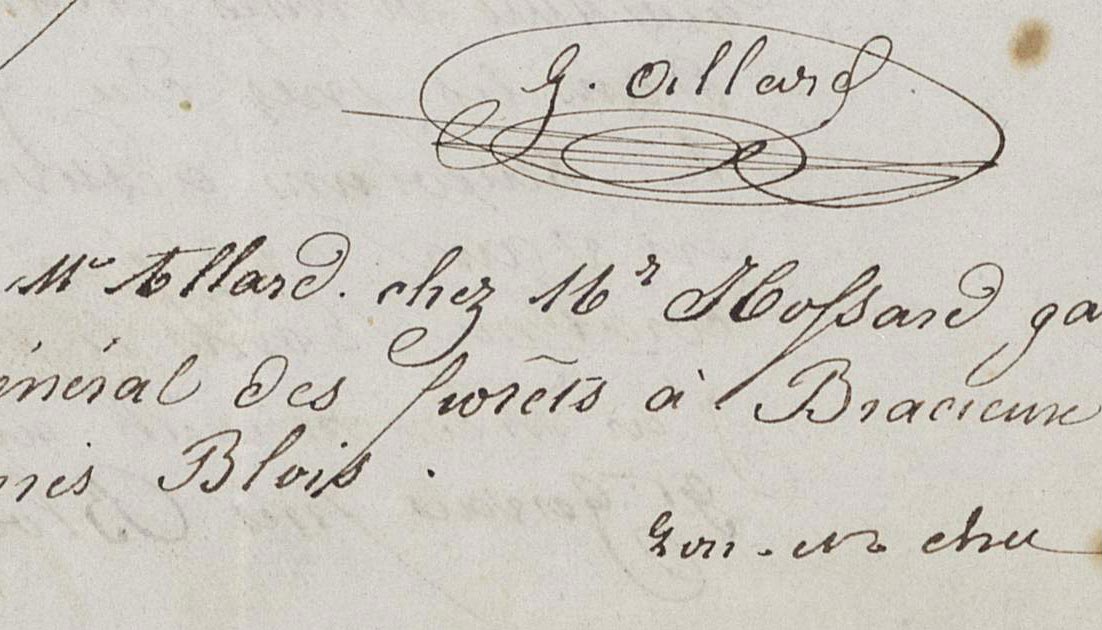 G. Allard
Mr Allard. chez Mr Hossard ga
énéral des forêts à Bracieux
Blois.